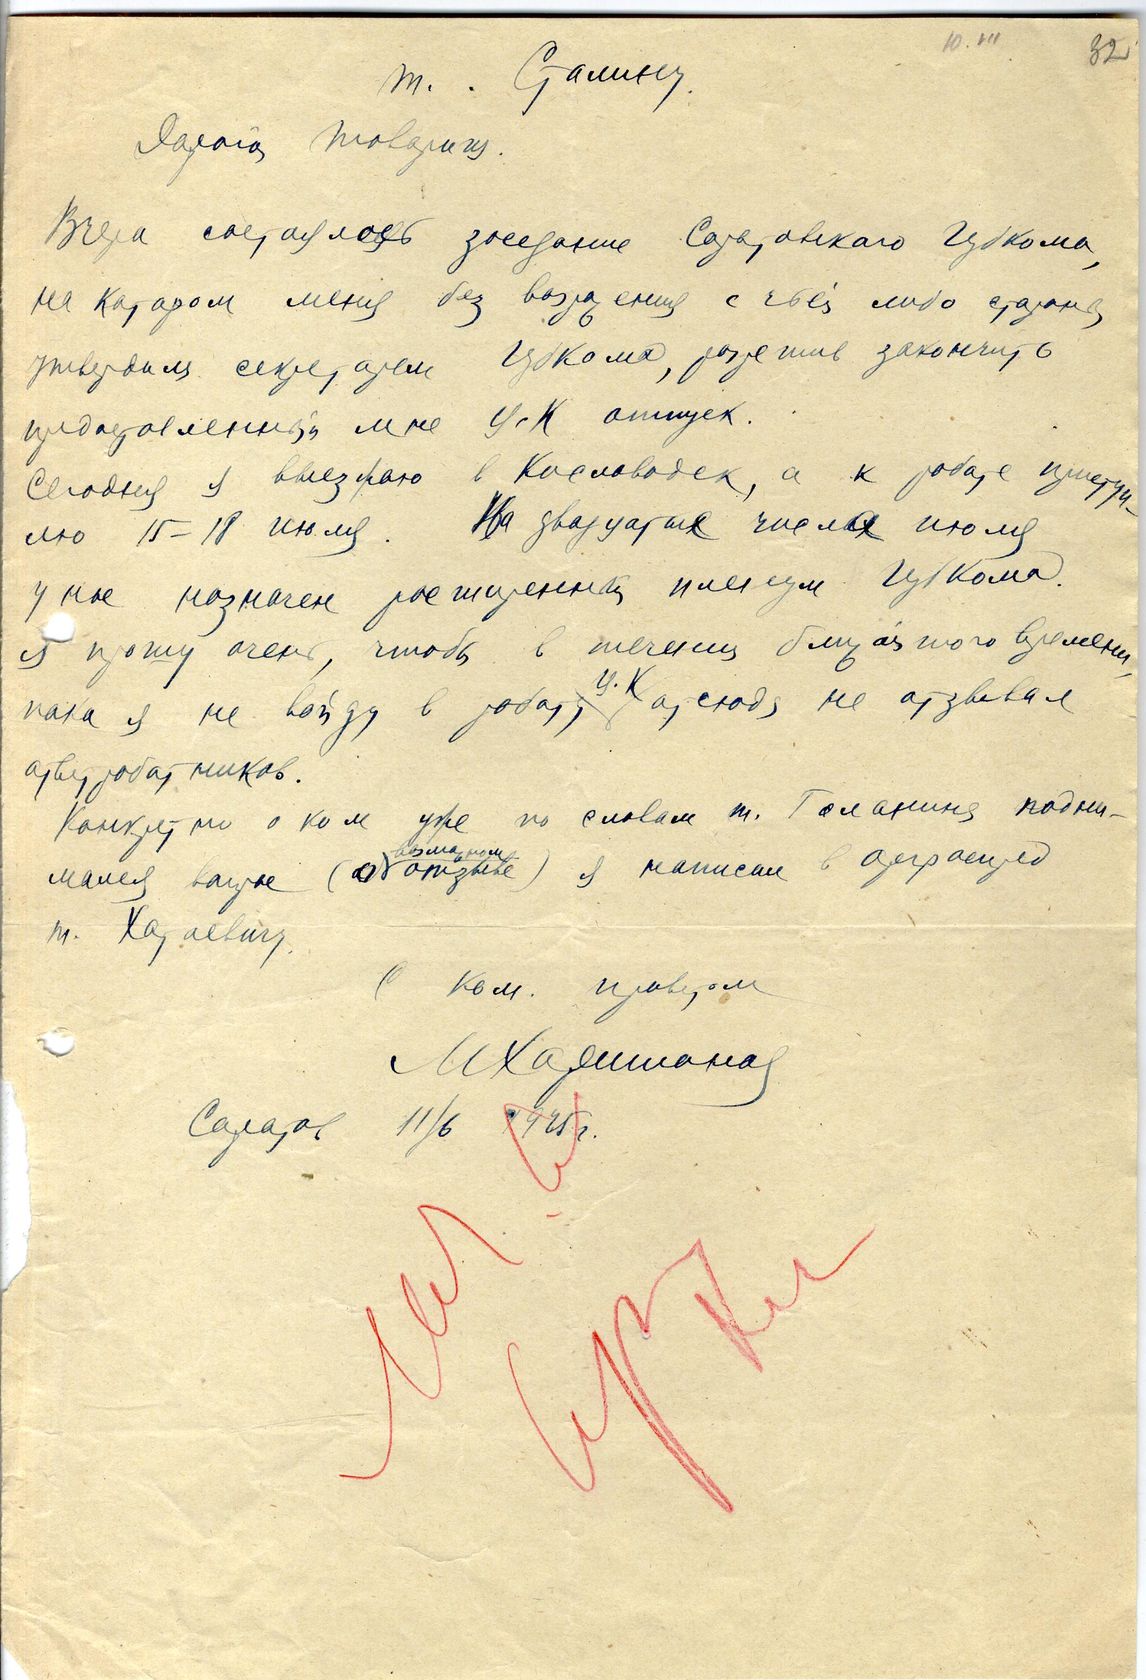 32
т. Сталину.
Дорогой товарищ.
Вчера состоялось заседание Саратовского Губкома,
на котором меня без возражения с чьей либо стороны
утвердили секретарем Губкома, разрешив закончить
предоставленный мне Ц.К отпуск.
Сегодня я выезжаю в Кисловодск, а к работе присту-
лю 15-18 июля. На двадцатые числа июля
у нас назначен расширенный пленум Губкома.
Я прошу очень, чтобы в течении ближайшего времени,
пока я не войду в работу Ц.К отсюда не отзывал
ответработников.
Конкретно о ком уже по словам т. подни-
мался вопрос (о возможном отзыве) я написал в орграспред
т. Хатаевичу.
С ком. приветом
МХаритонов
Саратов 11/6 1925г.